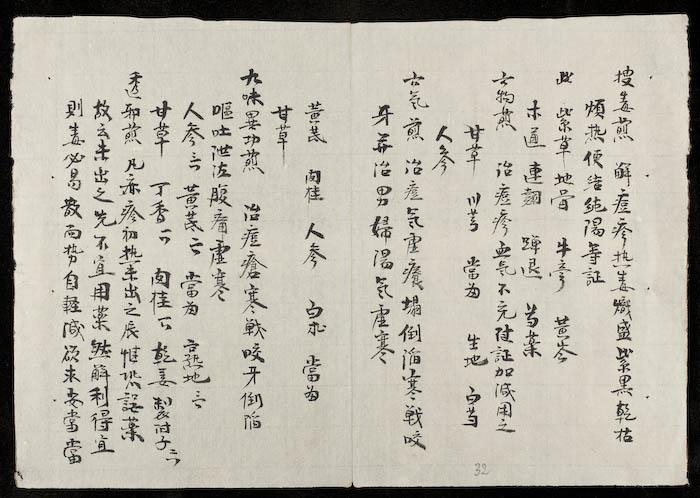 搜毒煎 解痘疹热毒熾盛紫黑乾枯
煩热便结纯陽等証
此 紫草 地骨 牛旁 黄芩
木通 連翹 蟬退 芍藥
六物煎 治痘疹血气不充随証加减用之
甘草 川芎 當归 生地 白芍
人參
六气煎 治痘气虚癢塌倒陷寒戰咬
牙并治男婦陽气虚寒
黄芪 肉桂 人參 白朮 當归
甘草
九味異功煎 治痘瘡寒戰咬牙倒陷
嘔吐泄泻腹痛虚寒
人參三 黄芪三 當归 六熟地三
甘草 丁香 肉桂 乾姜 製附子二
透邪煎 凡麻疹初热未出之辰惟恐誤藥
故云未出之先不宜用藥然解利得宜
則毒必易散而势自軽减欲求妥當當
32